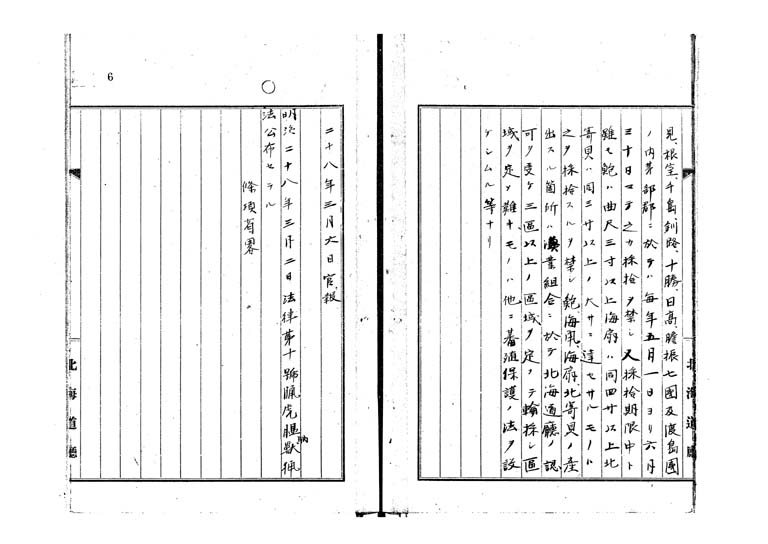 見、根室、千島、釧路、十勝、日高、膽振七國及渡島國
ノ内茅部郡ニ於テハ毎年五月一日ヨリ六月
三十日マテ之カ採捨ヲ禁シ又採捨期限中ト
雖モ鮑ハ曲尺三寸以上海扇ハ同四寸以上北
寄貝ハ同三寸以上ノ大サニ達セサルモノハ
之ヲ採捨スルヲ禁シ鮑、海鼠、海扇、北寄貝ノ産
出スル箇所ハ漁業組合ニ於テ北海道廳ノ認
可ヲ受ケ三區以上ノ區域ヲ定メテ輪採シ區
域ヲ定メ難キモノハ他ニ蕃殖保護ノ法ヲ設
ケシムル等ナリ
北海道廳
6
二十八年三月六日官報
明治二十八年三月二日法律第十號臘虎膃肭獸猟
法公布セラル
條項省畧
北海道廳